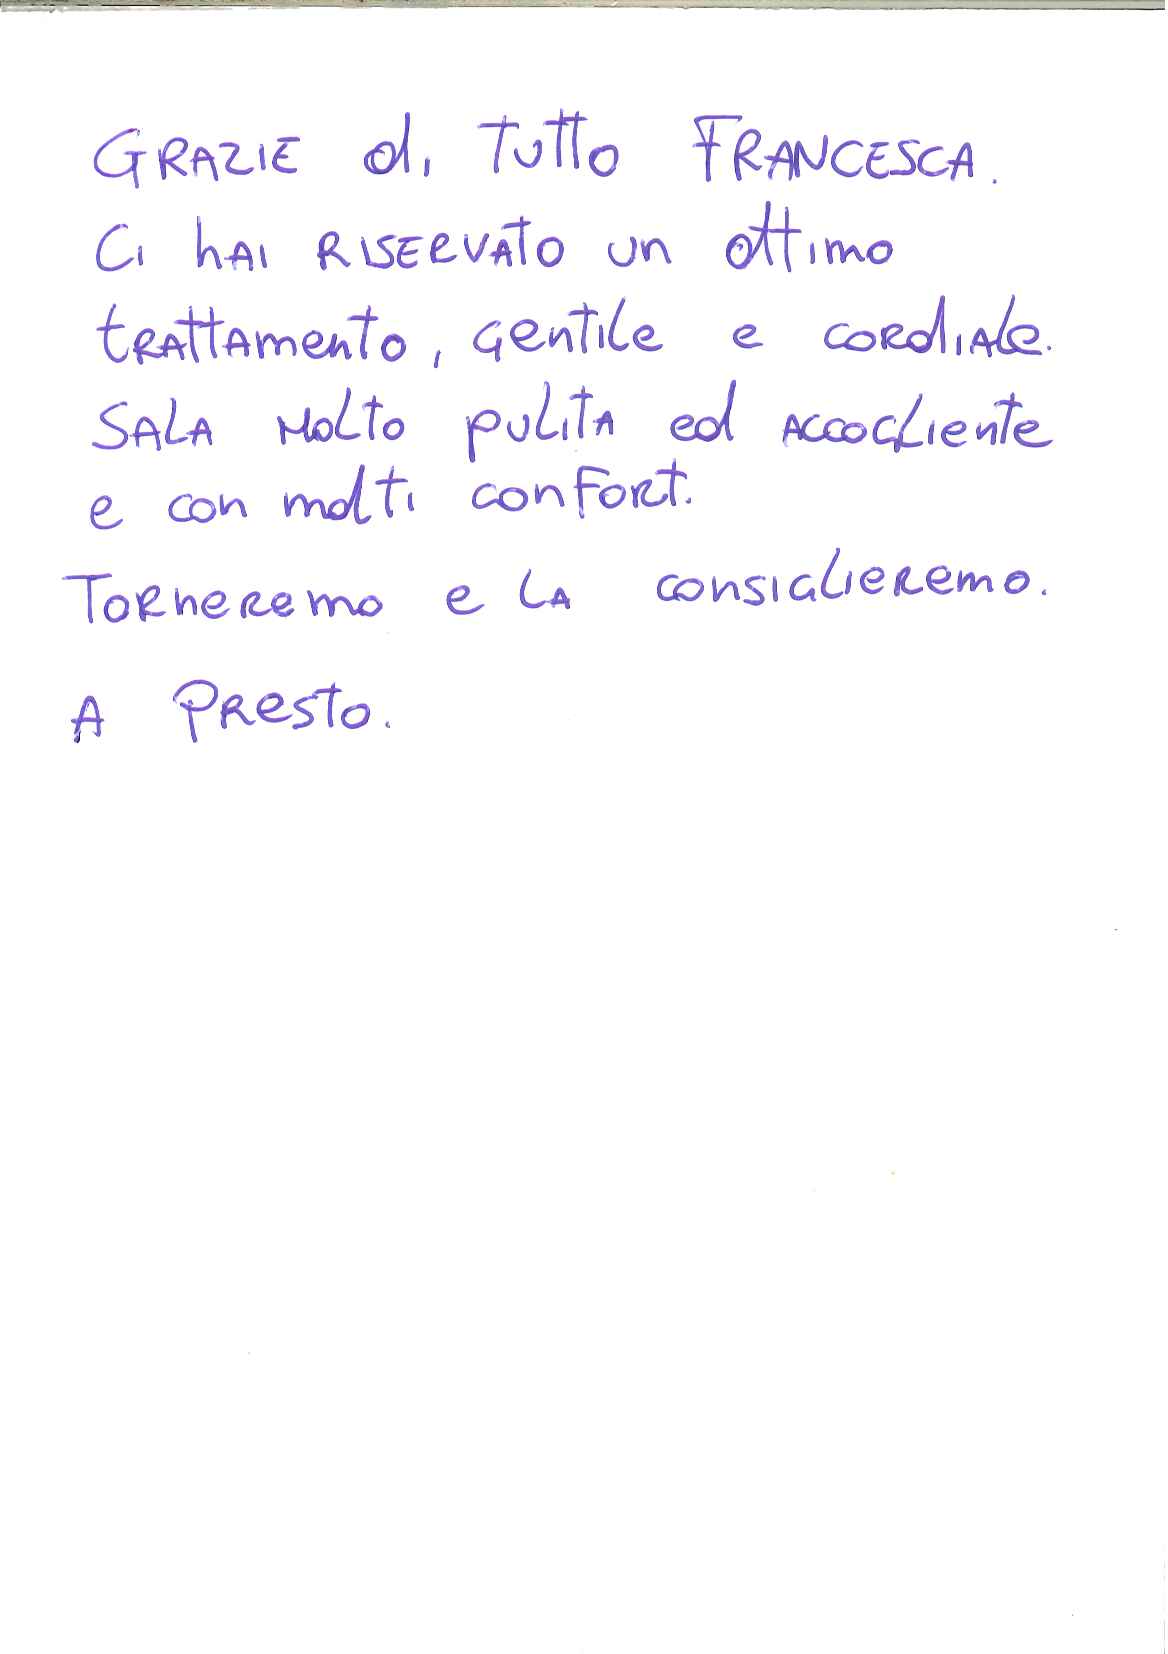 GRAZIE di TUTTO FRANCESCA.
Ci hAI RISERVATO un ottimo
tRAttAmento, gentile e coRdiAle.
SALA MOLTO pULITA ed ACCOGLiente
e con molti conFoRt.
ToRneRemo e LA consiglieRemo.
A PResto.